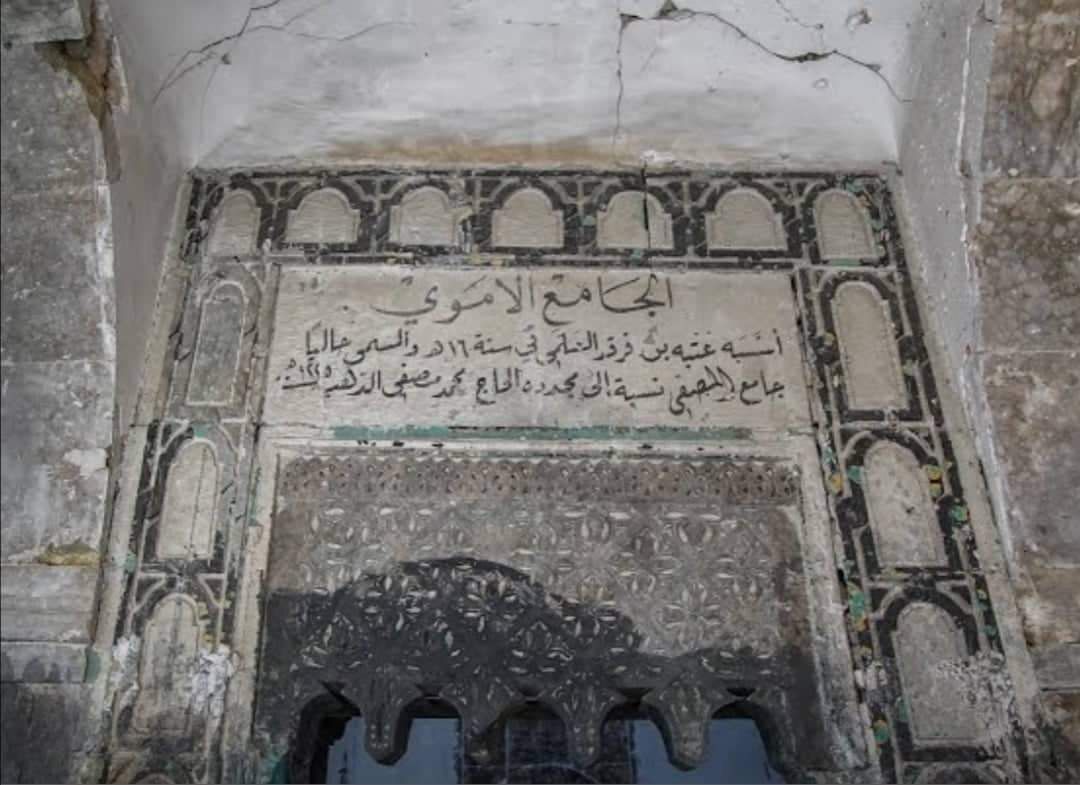 الجامع الاموي
أسسه عتبه بن فرقد السلمي في سنة ١٦هـ والمسمى حاليًا
جامع المصفي نسبة الى مجدده الحاج محمد مصفي الذهب سنة ١٢٢٥هـ